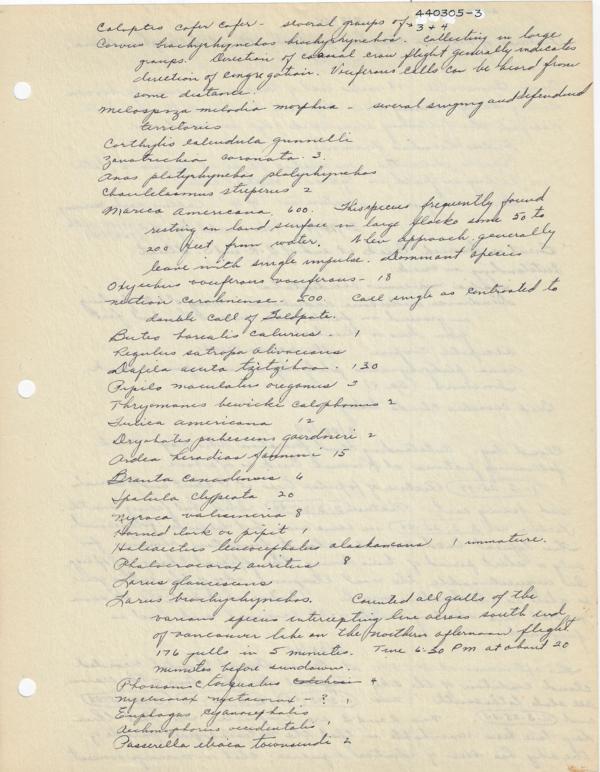 440305-3
Colaptes cafer cafer - several groups of 3 + 4
Corvus brachyrhynchos brachyrhynchos. Collecting in large
groups. Direction of casual crow flight generally indicates
direction of congregation. Vociferous calls can be heard from
some distance.
Melospiza melodia morphna - several singing and defended
territories
Corthylio calendula grinnelli
Zonotrichea coronata. 3.
Anas platyrhynchos platyrhynchos
Chaulelasmus streperus 2
Mareca Americana, 600. This species frequently found
resting on land surface in large flocks some 50 to
200 feet from water. When approach, generally
leave with single impulse. Dominant species
Oxyechus vociferous vociferous - 18
Nettion carolinense. 500. Call single as contrasted to
double call of Baldpate.
Buteo borealis calurus - 1
Regulus satrapa olivaceous
Dafila acuta tzitzihoa. 130
Pipilo maculatus oregonus 3
Thryomanes bewicki calophonus 2
Fulica americana 12
Dryobates pubescens gairdneri 2
Ardea herodias fannini 15
Branta canadensis 6
Spatula clypeata 20
Nyroca valisineria 8
Horned lark or pipit 1
Haliaeetus leucocephalus alaskanus 1 immature.
Phalacrocorax auritus 8
Larus glaucescens
Larus brachyrhynchos. Counted all gulls of the
various species intercepting line across south end
of Vancouver lake on the northern afternoon flight
176 gulls in 5 minutes. Time 6:30 PM at about 20
minutes before sundown.
Phasianus torquatus 4
Nycticorax nycticorax - ? 1
Euphagus cyanocephalis
Aechmophorus occidentalis 1
Passerella iliaca townsendi 2